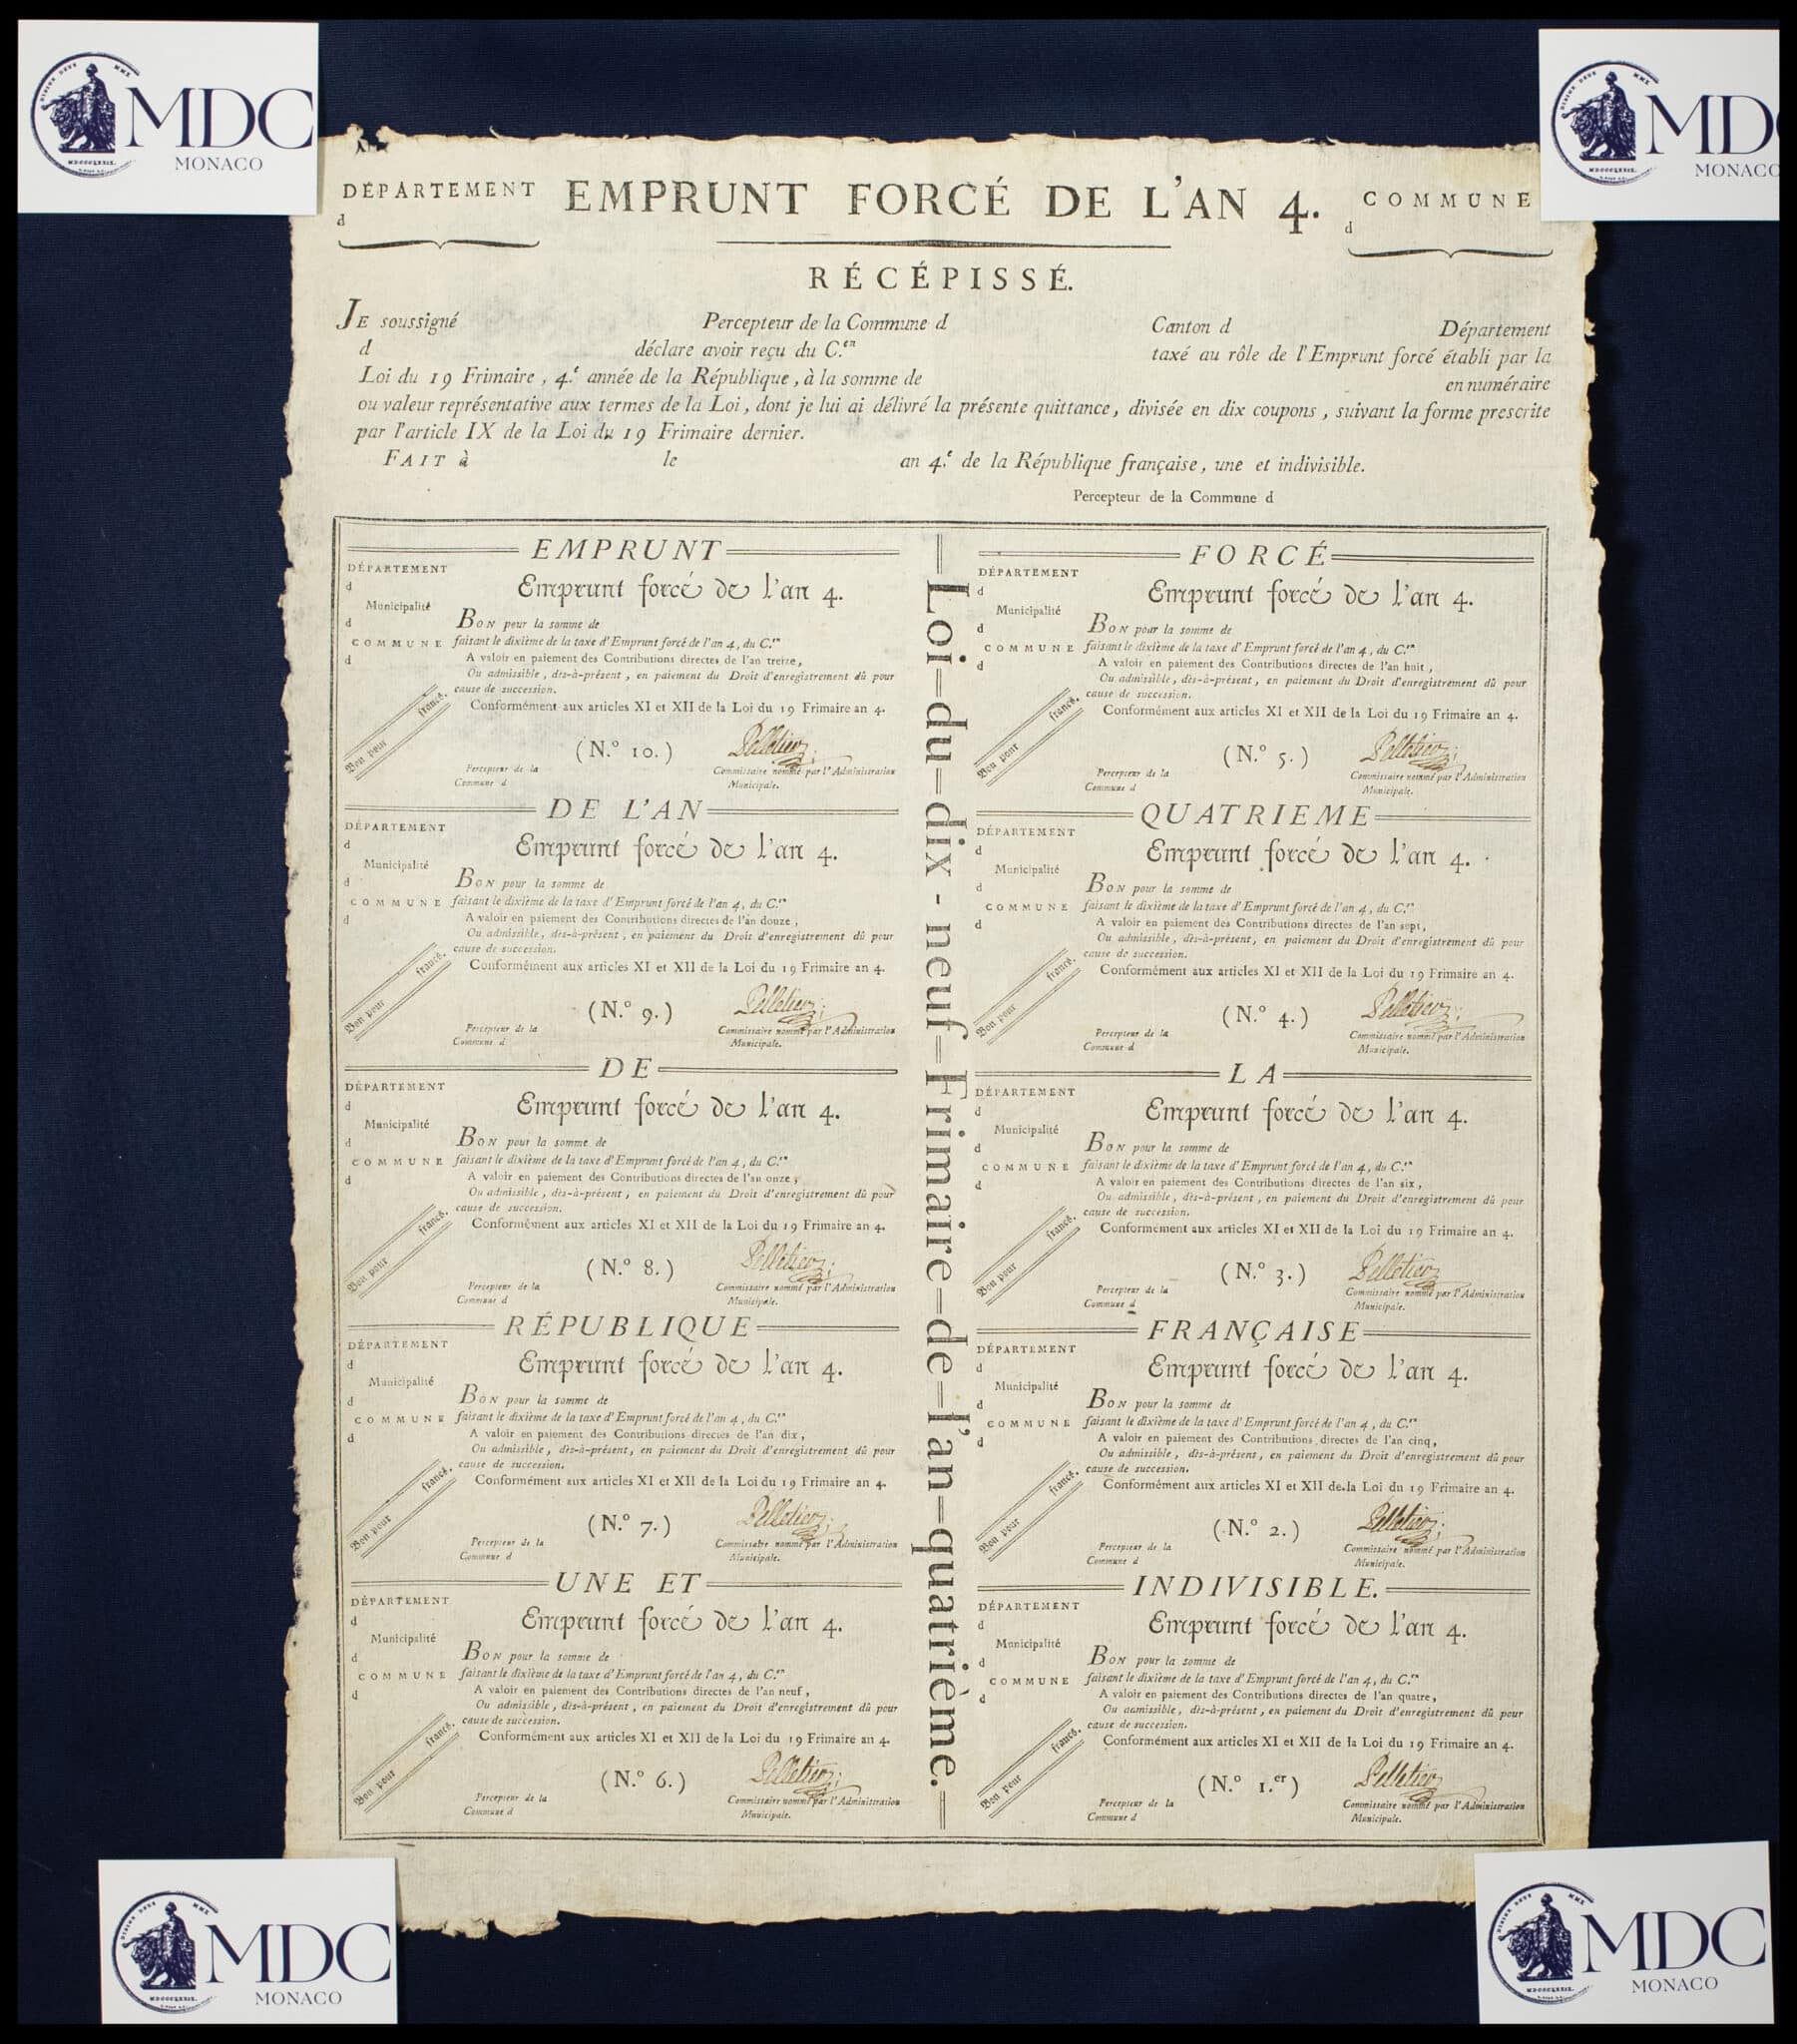 MDC
MONACO
MD
MONACO
DÉPARTEMENT
d
EMPRUNT FORCÉ DE L'AN 4.
COMMUNE
d
RÉCÉPISSÉ.
JE soussigné Percepteur de la Commune d Canton d Département
d déclare avoir reçu du C.en taxé au rôle de l'Emprunt forcé établi par la
Loi du 19 Frimaire, 4.e année de la République, à la somme de en numéraire
ou valeur représentative aux termes de la Loi, dont je lui ai délivré la présente quittance, divisée en dix coupons, suivant la forme prescrite
par l'article IX de la Loi du 19 Frimaire dernier.
FAIT à le an 4.e de la République française, une et indivisible.
Percepteur de la Commune d
EMPRUNT
DÉPARTEMENT
d
Emprunt forcé de l'an 4.
Municipalité
d
BON pour la somme de
COMMUNE
d
faisant le dixième de la taxe d'Emprunt forcé de l'an 4, du C.en
A valoir en paiement des Contributions directes de l'an treize,
Ou admissible, dès-à-présent, en paiement du Droit d'enregistrement dû pour
cause de succession.
Conformément aux articles XI et XII de la Loi du 19 Frimaire an 4.
Bon pour francs.
(N.° 10.)
Pelletier
Percepteur de la
Commune d
Commissaire nommé par l'Administration
Municipale.
FORCÉ
DÉPARTEMENT
d
Emprunt forcé de l'an 4.
Municipalité
d
BON pour la somme de
COMMUNE
d
faisant le dixième de la taxe d'Emprunt forcé de l'an 4, du C.en
A valoir en paiement des Contributions directes de l'an huit,
Ou admissible, dès-à-présent, en paiement du Droit d'enregistrement dû pour
cause de succession.
Conformément aux articles XI et XII de la Loi du 19 Frimaire an 4.
Bon pour francs.
(N.° 5.)
Pelletier
Percepteur de la
Commune d
Commissaire nommé par l'Administration
Municipale.
DE L'AN
DÉPARTEMENT
d
Emprunt forcé de l'an 4.
Municipalité
d
BON pour la somme de
COMMUNE
d
faisant le dixième de la taxe d'Emprunt forcé de l'an 4, du C.en
A valoir en paiement des Contributions directes de l'an douze,
Ou admissible, dès-à-présent, en paiement du Droit d'enregistrement dû pour
cause de succession.
Conformément aux articles XI et XII de la Loi du 19 Frimaire an 4.
Bon pour francs.
(N.° 9.)
Pelletier
Percepteur de la
Commune d
Commissaire nommé par l'Administration
Municipale.
QUATRIEME
DÉPARTEMENT
d
Emprunt forcé de l'an 4.
Municipalité
d
BON pour la somme de
COMMUNE
d
faisant le dixième de la taxe d'Emprunt forcé de l'an 4, du C.en
A valoir en paiement des Contributions directes de l'an sept,
Ou admissible, dès-à-présent, en paiement du Droit d'enregistrement dû pour
cause de succession.
Conformément aux articles XI et XII de la Loi du 19 Frimaire an 4.
Bon pour francs.
(N.° 4.)
Pelletier
Percepteur de la
Commune d
Commissaire nommé par l'Administration
Municipale.
DE
DÉPARTEMENT
d
Emprunt forcé de l'an 4.
Municipalité
d
BON pour la somme de
COMMUNE
d
faisant le dixième de la taxe d'Emprunt forcé de l'an 4, du C.en
A valoir en paiement des Contributions directes de l'an onze,
Ou admissible, dès-à-présent, en paiement du Droit d'enregistrement dû pour
cause de succession.
Conformément aux articles XI et XII de la Loi du 19 Frimaire an 4.
Bon pour francs.
(N.° 8.)
Pelletier
Percepteur de la
Commune d
Commissaire nommé par l'Administration
Municipale.
LA
DÉPARTEMENT
d
Emprunt forcé de l'an 4.
Municipalité
d
BON pour la somme de
COMMUNE
d
faisant le dixième de la taxe d'Emprunt forcé de l'an 4, du C.en
A valoir en paiement des Contributions directes de l'an six,
Ou admissible, dès-à-présent, en paiement du Droit d'enregistrement dû pour
cause de succession.
Conformément aux articles XI et XII de la Loi du 19 Frimaire an 4.
Bon pour francs.
(N.° 3.)
Pelletier
Percepteur de la
Commune d
Commissaire nommé par l'Administration
Municipale.
RÉPUBLIQUE
DÉPARTEMENT
d
Emprunt forcé de l'an 4.
Municipalité
d
BON pour la somme de
COMMUNE
d
faisant le dixième de la taxe d'Emprunt forcé de l'an 4, du C.en
A valoir en paiement des Contributions directes de l'an dix,
Ou admissible, dès-à-présent, en paiement du Droit d'enregistrement dû pour
cause de succession.
Conformément aux articles XI et XII de la Loi du 19 Frimaire an 4.
Bon pour francs.
(N.° 7.)
Pelletier
Percepteur de la
Commune d
Commissaire nommé par l'Administration
Municipale.
FRANÇAISE
DÉPARTEMENT
d
Emprunt forcé de l'an 4.
Municipalité
d
BON pour la somme de
COMMUNE
d
faisant le dixième de la taxe d'Emprunt forcé de l'an 4, du C.en
A valoir en paiement des Contributions directes de l'an cinq,
Ou admissible, dès-à-présent, en paiement du Droit d'enregistrement dû pour
cause de succession.
Conformément aux articles XI et XII de la Loi du 19 Frimaire an 4.
Bon pour francs.
(N.° 2.)
Pelletier
Percepteur de la
Commune d
Commissaire nommé par l'Administration
Municipale.
UNE ET
DÉPARTEMENT
d
Emprunt forcé de l'an 4.
Municipalité
d
BON pour la somme de
COMMUNE
d
faisant le dixième de la taxe d'Emprunt forcé de l'an 4, du C.en
A valoir en paiement des Contributions directes de l'an neuf,
Ou admissible, dès-à-présent, en paiement du Droit d'enregistrement dû pour
cause de succession.
Conformément aux articles XI et XII de la Loi du 19 Frimaire an 4.
Bon pour francs.
(N.° 6.)
Pelletier
Percepteur de la
Commune d
Commissaire nommé par l'Administration
Municipale.
INDIVISIBLE.
DÉPARTEMENT
d
Emprunt forcé de l'an 4.
Municipalité
d
BON pour la somme de
COMMUNE
d
faisant le dixième de la taxe d'Emprunt forcé de l'an 4, du C.en
A valoir en paiement des Contributions directes de l'an quatre,
Ou admissible, dès-à-présent, en paiement du Droit d'enregistrement dû pour
cause de succession.
Conformément aux articles XI et XII de la Loi du 19 Frimaire an 4.
Bon pour francs.
(N.° 1.er)
Pelletier
Percepteur de la
Commune d
Commissaire nommé par l'Administration
Municipale.
Loi=du=dix-neuf=Frimaire=de=l'an=quatrième.
MDC
MONACO
MDC
MONACO